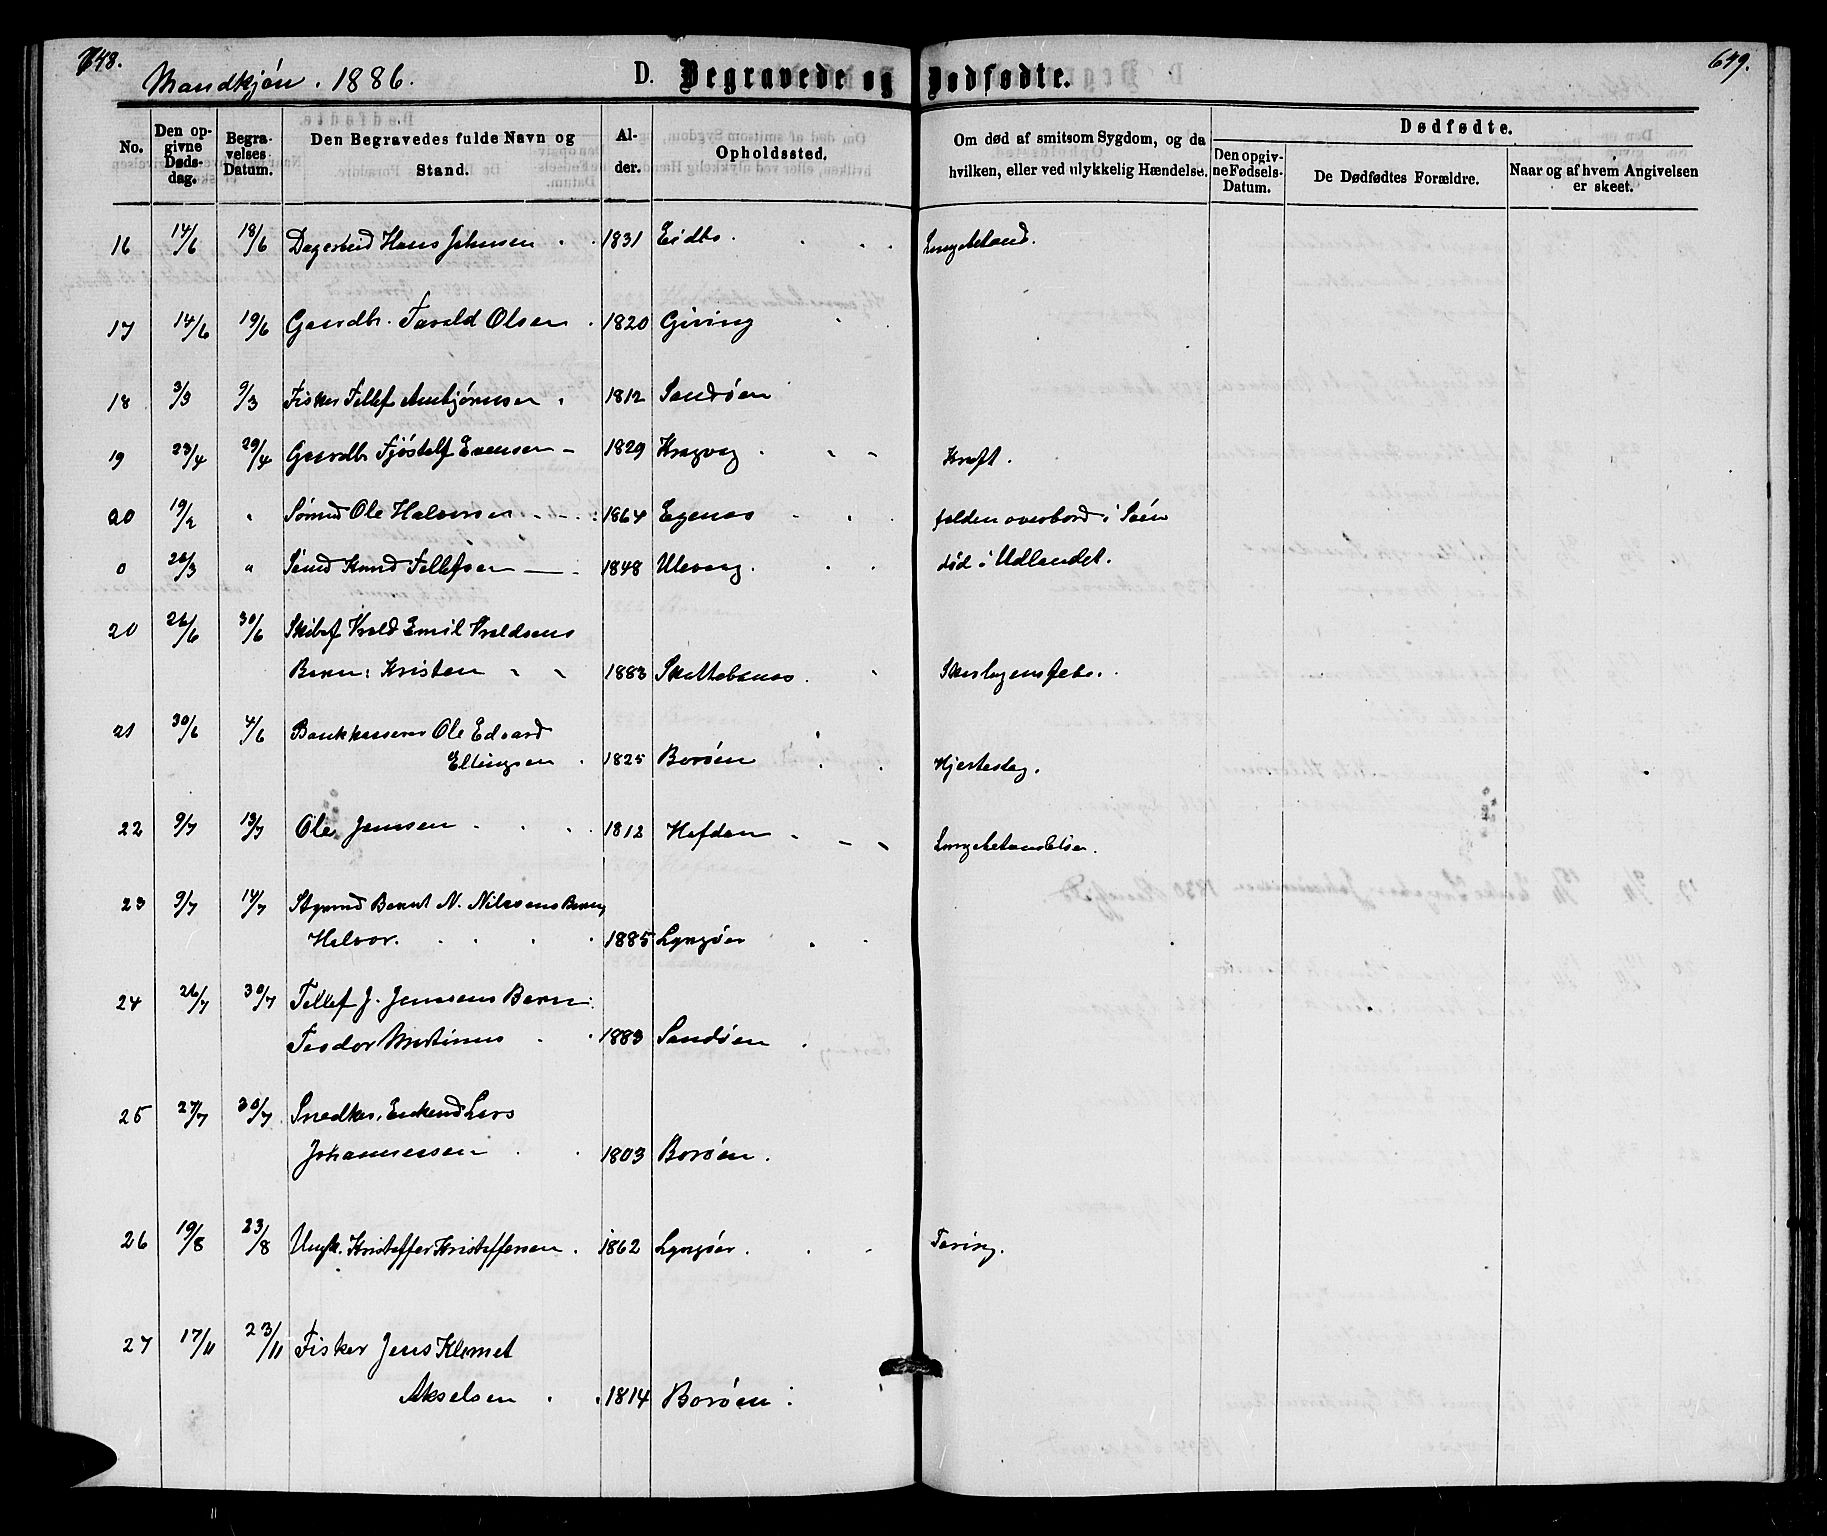 648.
649.
Mandkjøn. 1886.
D. Begravede og Dødfødte.
No.
Den opgivne Dødsdag.
Begravelses Datum.
Den Begravedes fulde Navn og Stand.
Alder.
Opholdssted.
Om død af smitsom Sygdom, og da hvilken, eller ved ulykkelig Hændelse.
Dødfødte.
Den opgivne Fødsels-Datum.
De Dødfødtes Forældre.
Naar og af hvem Angivelsen er skeet.
16 14/6 18/6 Hans Johnsen 1831 Eidbo.
17 14/6 19/6 Gaardbr. Tarald Olsen 1820 Giving
18 3/3 9/3 Fisker Tellef Anbjørnsen 1812 Sandøen
19 23/4 29/4 Gaardbr Fjøstelf Evensen 1829 Kragvag Kræft.
20 19/2 " Sømd Ole Halvorsen 1864 Egenes falden overbord i Søen
0 26/3 " Sømd Knud Tellefsen 1848 Ulevag. død i Udlandet.
20 26/6 30/6 Skibsf Krald Emil Kraldsens
Barn: Kristen 1883 Skottebanes. Skarlagensfeber.
21 30/6 4/6 Bankkasserer Ole Edvard
Ellingsen 1825 Borøen Hjerteslag.
22 9/7 13/7 Ole Jenssen 1812 Hafden
23 9/7 14/7 Styrmd Bernt N. Nilssens Barn
Halvor. 1885 Lyngøer
24 26/7 30/7 Tellef J. Jenssens Barn:
Teodor Martinus 1883 Sandøen
25 27/7 30/7 Snedker, Enkemd Lars
Johannessen 1803 Borøen.
26 19/8 23/8 Ungk. Kristoffer Kristoffersen. 1862 Lyngøer. Tæring.
27 17/11 23/11 Fisker Jens Klemet
Akselsen 1814 Borøen